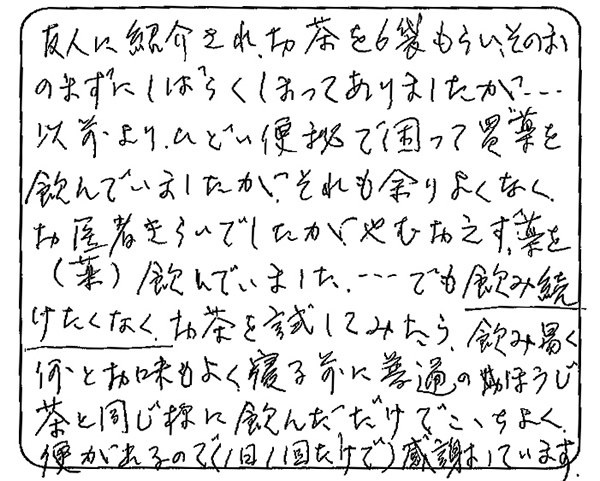 友人に紹介され、お茶を6袋もらい、そのまま
のまずにしばらくしまってありましたが…
以前より、ひどい便秘で困って買薬を
飲んでいましたが、それも余りよくなく、
お医者きらいでしたが、やむおえず、薬を
(薬)飲んでいました。…でも飲み続
けたくなく、お茶を試してみたら、飲み易く
何とお味もよく寝る前に普通のほうじ
茶と同じ様に飲んだだけでここちよく、
便がれるので(1日1回だけで)感謝しています。